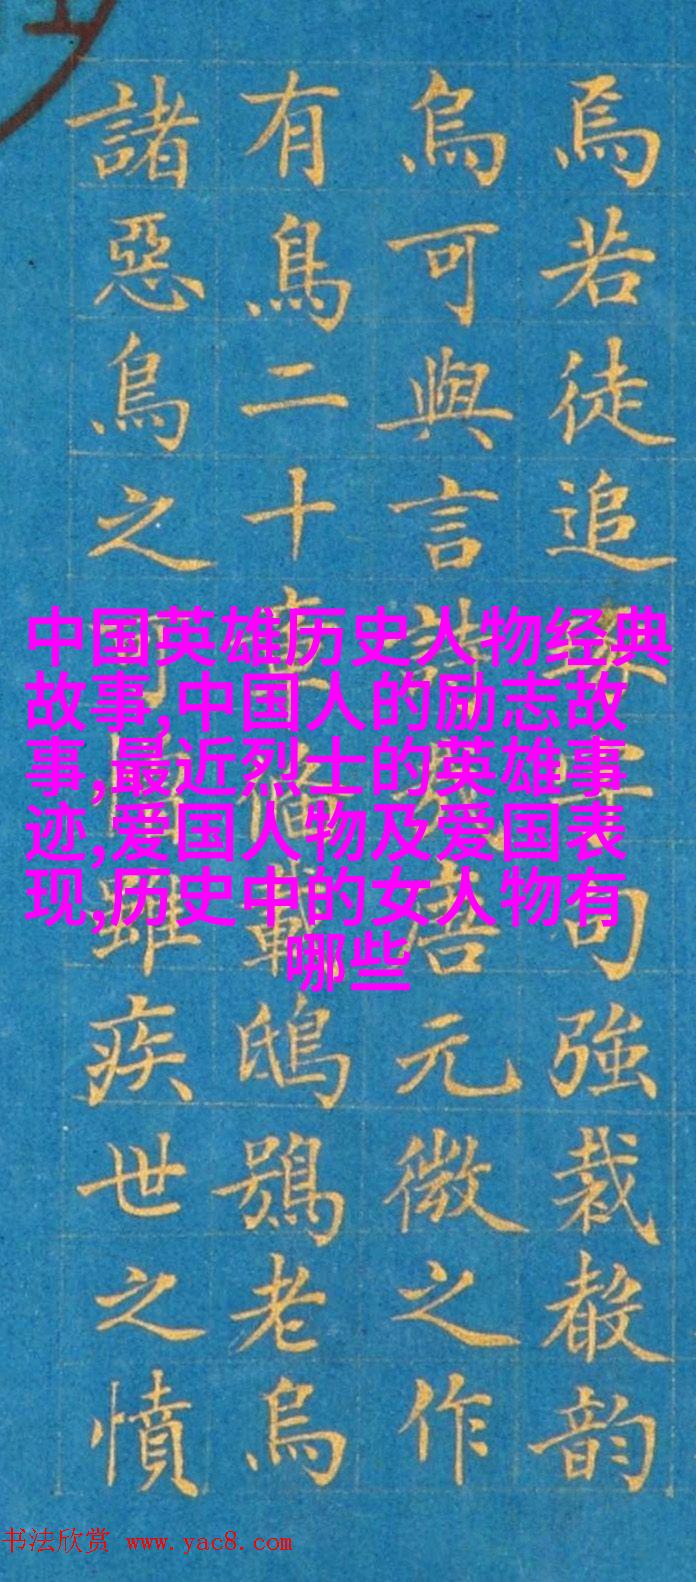 中国英雄历史人物经典
故事,中国人的励志故
事,最近烈士的英雄事
迹,爱国人物及爱国表
现,历史中的女人物有
哪些
焉若徒追句強裁散韵
烏可與言唐元微之作
有鳥二十章備載鴟鴞老烏
諸惡鳥之雖疾世之憤
书法欣赏 www.yac8.com